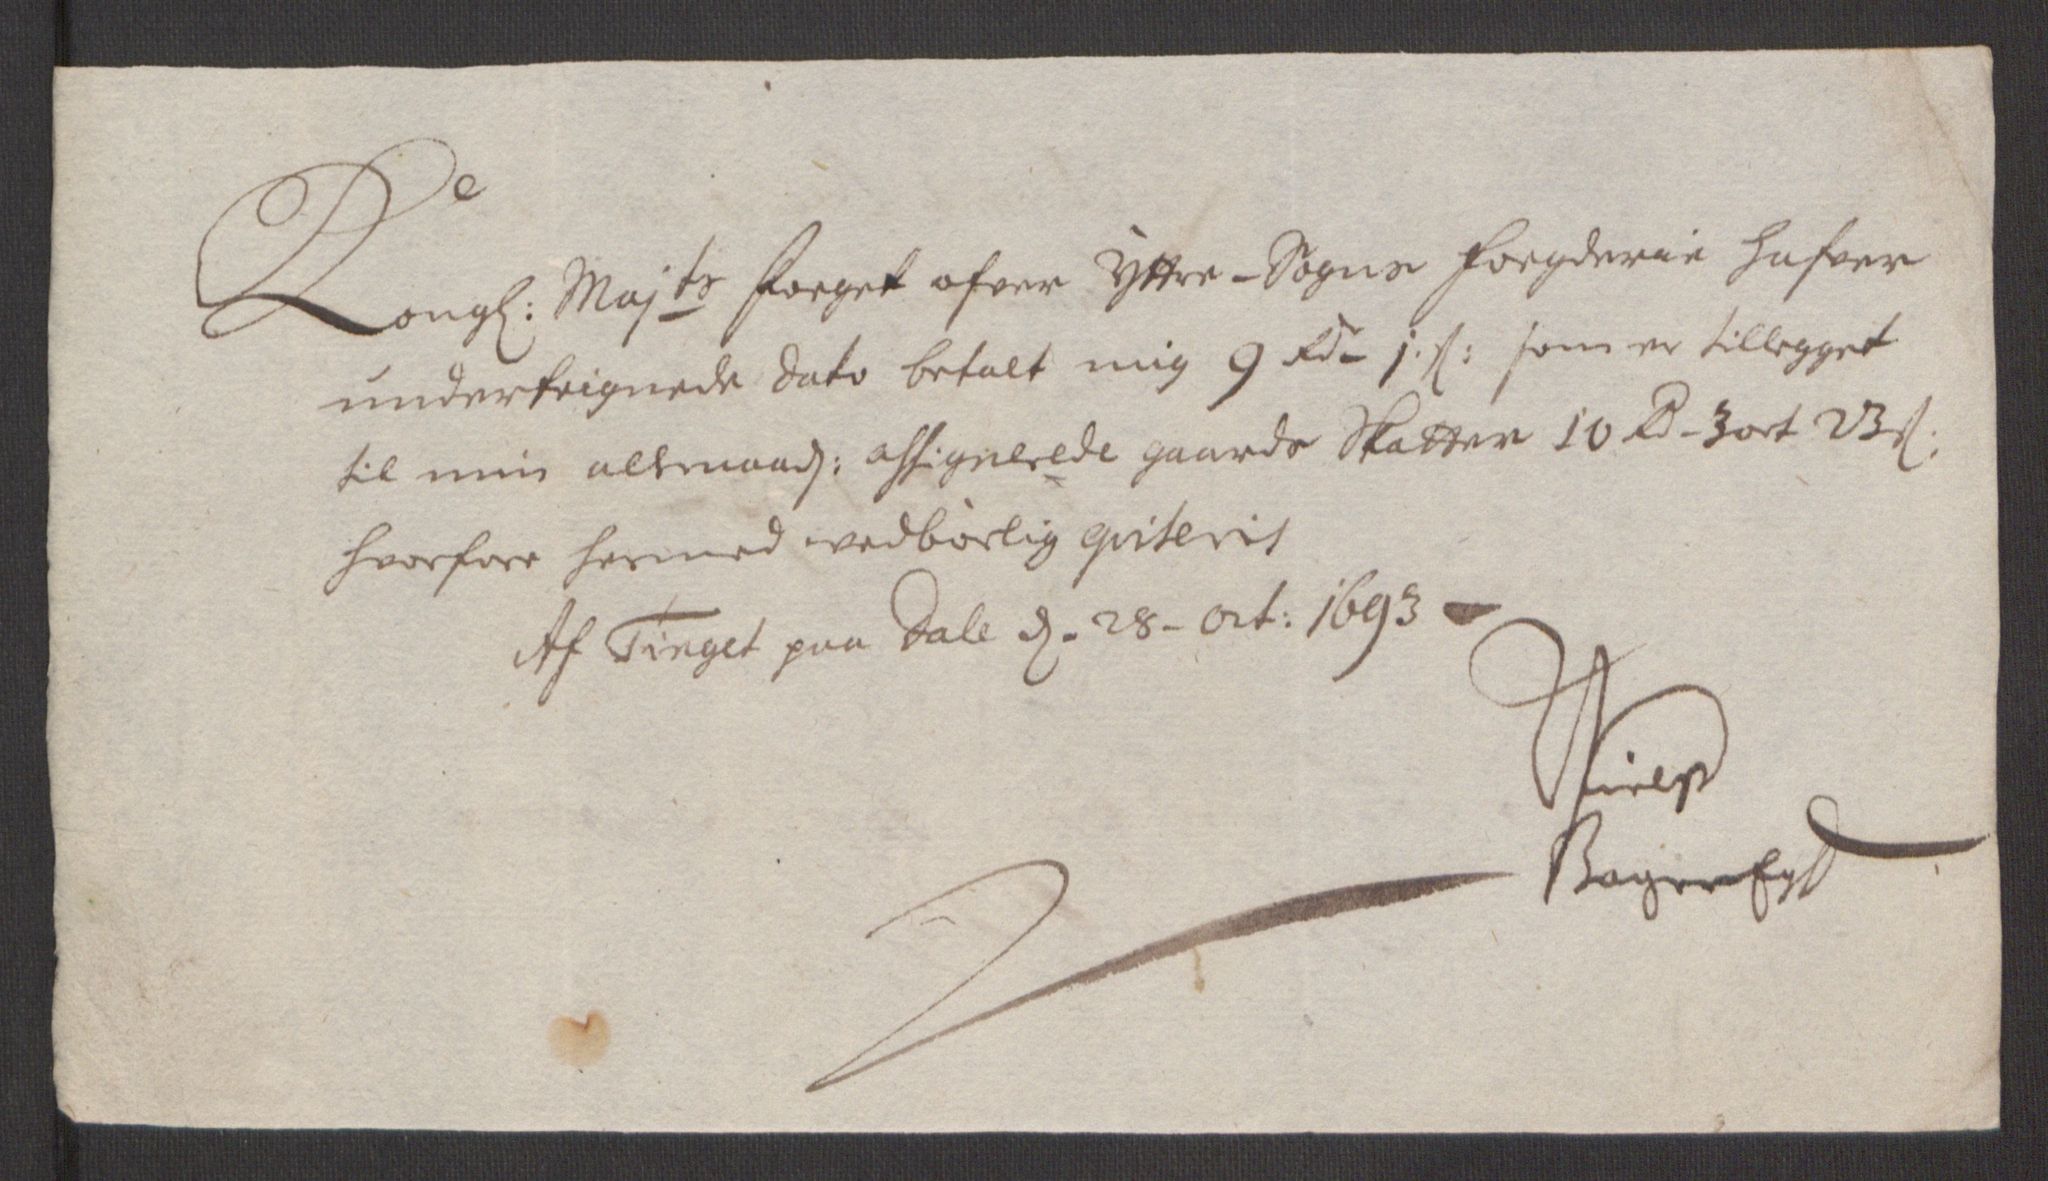 De
Kongl: Majts Foeget ofver Yttre-Sogns Foegderie hafver
underteignede dato betalt mig 9 Rd- j. s: som er tillegget
til min allernaad: assignerede gaards Skatter 10 Rd-3 ort 23 s:
hvorfore hermed vedbörlig qviteris
Af Tinget paa Dale d. 28- Oct: 1693
Nielss